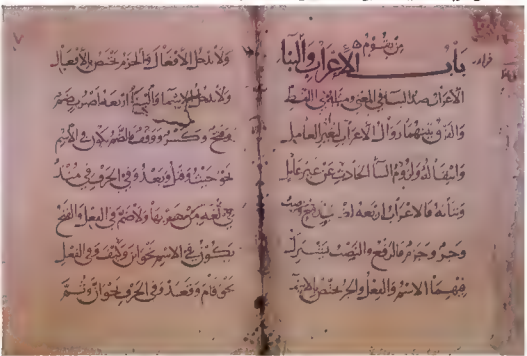 باب الإعراب والبناء
الإعراب ضد البناء في المعنى ومثله في اللفظ
والفرق بينهما زوال الإعراب لتغير العامل
وانتقاله ولزوم البناء الحادث عن غير عامل
وثباته فالإعراب أربعة أضرب رفع ونصب
وجر وجزم فالرفع والنصب يشترك
فيهما الاسم والفعل والجر يختص الاسم
ولا يدخل الأفعال والجزم يختص بالأفعال
ولا يدخل الأسماء والبناء أربعة أضرب ضم
وفتح وكسر ووقف فالضم يكون في الاسم
نحو حيث وقبل وبعد وفي الحرف في منذ
في لغة من جر بها ولا ضم في الفعل والفتح
يكون في الاسم نحو أين وكيف وفي الفعل
نحو قام وقعد وفي الحرف نحو إن وثم